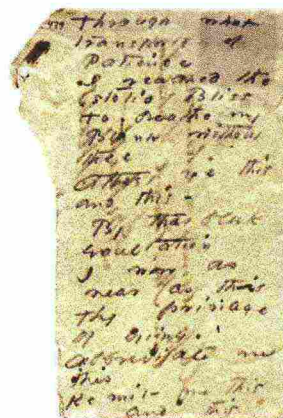 Through what
transports of
Patience
I reached the
stolid Bliss
To breathe my
Blank without
thee
Attest me this
and this -
By that bleak
exultation
I won as
near as this
Thy privilege
of dying
Abbreviate me
this
Remit me this
and